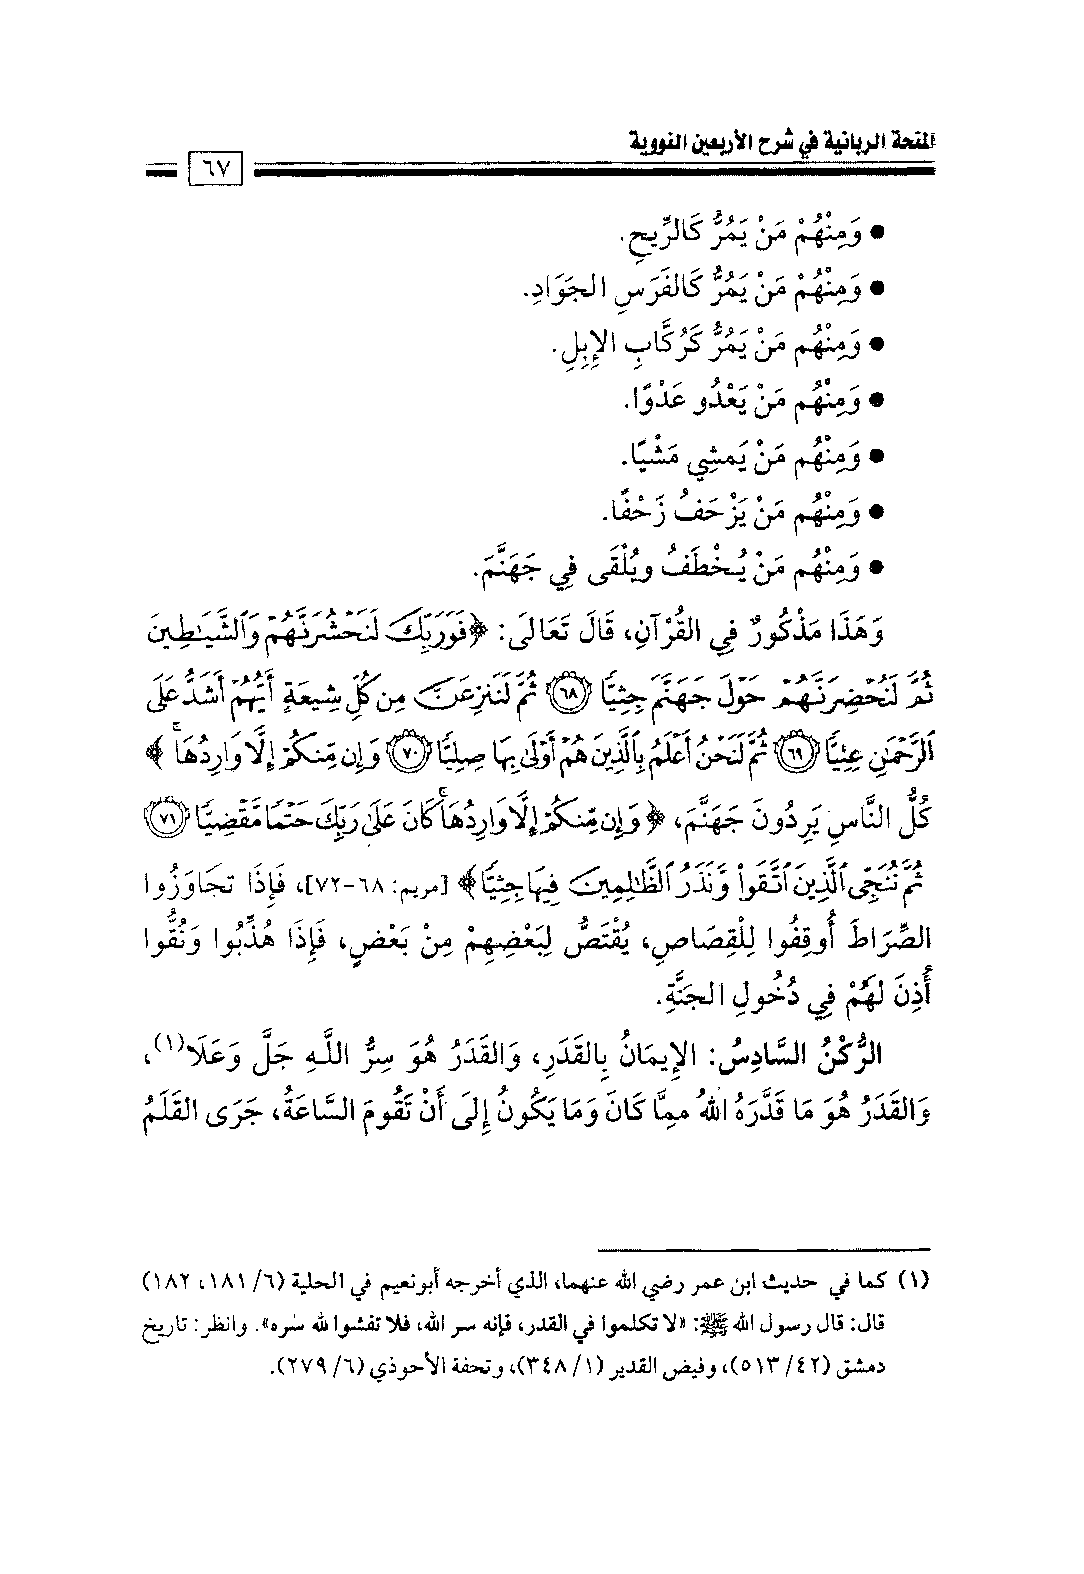 المنحة الربانية في شرح الأربعين النووية
٦٧
● وَمِنْهُمْ مَنْ يَمُرُّ كَالرِّيحِ.
● وَمِنْهُمْ مَنْ يَمُرُّ كَالفَرَسِ الجَوَادِ.
● وَمِنْهُم مَنْ يَمُرُّ كَرُكَّابِ الإِبِلِ.
● وَمِنْهُم مَنْ يَعْدُو عَدْوًا.
● وَمِنْهُم مَنْ يَمشِي مَشْيًا.
● وَمِنْهُم مَنْ يَزْحَفُ زَحْفًا.
● وَمِنْهُم مَنْ يُخْطَفُ ويُلْقَى فِي جَهَنَّمَ.
وَهَذَا مَذْكُورٌ فِي القُرْآنِ، قَالَ تَعَالَى: ﴿فَوَرَبِّكَ لَنَحْشُرَنَّهُمْ وَٱلشَّيَٰطِينَ
ثُمَّ لَنُحْضِرَنَّهُمْ حَوْلَ جَهَنَّمَ جِثِيًّا ٦٨ ثُمَّ لَنَنزِعَنَّ مِن كُلِّ شِيعَةٍ أَيُّهُمْ أَشَدُّ عَلَى
ٱلرَّحْمَٰنِ عِتِيًّا ٦٩ ثُمَّ لَنَحْنُ أَعْلَمُ بِٱلَّذِينَ هُمْ أَوْلَىٰ بِهَا صِلِيًّا ٧٠ وَإِن مِّنكُمْ إِلَّا وَارِدُهَا ۚ﴾
كُلُّ النَّاسِ يَرِدُونَ جَهَنَّمَ، ﴿وَإِن مِّنكُمْ إِلَّا وَارِدُهَا ۚ كَانَ عَلَىٰ رَبِّكَ حَتْمًا مَّقْضِيًّا ٧١
ثُمَّ نُنَجِّى ٱلَّذِينَ ٱتَّقَوا۟ وَّنَذَرُ ٱلظَّٰلِمِينَ فِيهَا جِثِيًّا﴾ [مريم: ٦٨-٧٢]، فَإِذَا تَجَاوَزُوا
الصِّرَاطَ أُوقِفُوا لِلْقِصَاصِ، يُقْتَصُّ لِبَعْضِهِمْ مِنْ بَعْضٍ، فَإِذَا هُذِّبُوا وَنُقُّوا
أُذِنَ لَهُمْ فِي دُخُولِ الجَنَّةِ.
الرُّكْنُ السَّادِسُ: الإِيمَانُ بِالقَدَرِ، وَالقَدَرُ هُوَ سِرُّ اللَّـهِ جَلَّ وَعَلَا(١)،
وَالقَدَرُ هُوَ مَا قَدَّرَهُ اللهُ مِمَّا كَانَ وَمَا يَكُونُ إِلَى أَنْ تَقُومَ السَّاعَةُ، جَرَى القَلَمُ
(١) كما في حديث ابن عمر رضي الله عنهما، الذي أخرجه أبونعيم في الحلية (٦/ ١٨١، ١٨٢)
قال: قال رسول الله ﷺ: «لا تكلموا في القدر، فإنه سر الله، فلا تفشوا لله سره». وانظر: تاريخ
دمشق (٤٢/ ٥١٣)، وفيض القدير (١/ ٣٤٨)، وتحفة الأحوذي (٦/ ٢٧٩).